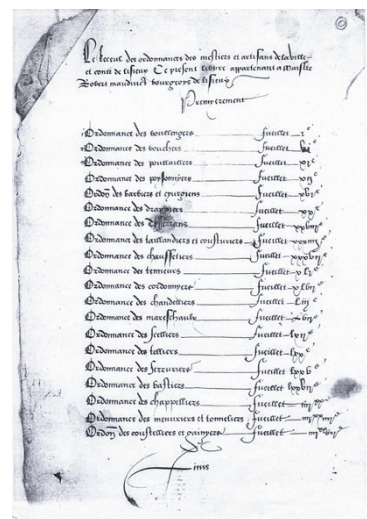 Le Recueil des ordonnances des mestiers et artisans de la ville
et conté de lisieux Ce present Livre appartenant a Maistre
Robert mauduit bourgeoys de lisieux
Premyerement
Ordonnance des boullengers fueillet
Ordonnance des bouchers fueillet
Ordonnance des poullailliers fueillet xi e
Ordonnance des poyssonyers fueillet xii e
Ordon des barbiers et cyrurgiens fueillet xvi e
Ordonnance des drappiers fueillet xx e
Ordonnance des fueillet
Ordonnance des taillandiers et cousturiers fueillet
Ordonnance des chaussetiers fueillet xxxvii e
Ordonnance des tenneurs fueillet xl e
Ordonnance des cordonnyers fueillet xlvii e
Ordonnance des chandelliers fueillet liii e
Ordonnance des mareschaulx fueillet
Ordonnance des selliers fueillet
Ordonnance des telliers fueillet lxx e
Ordonnance des serruriers fueillet lxxv e
Ordonnance des bastiers fueillet lxxvii e
Ordonnance des chappelliers fueillet
Ordonnance des menuziers et tonneliers fueillet
Ordon des coustilliers et gaynyers fueillet